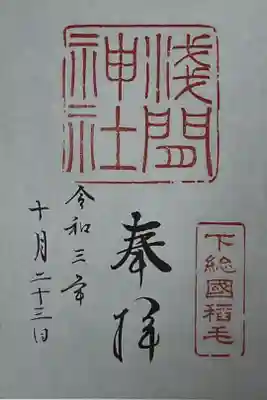 浅間
神社
奉拝
下総國稲毛
令和三年
十月二十三日